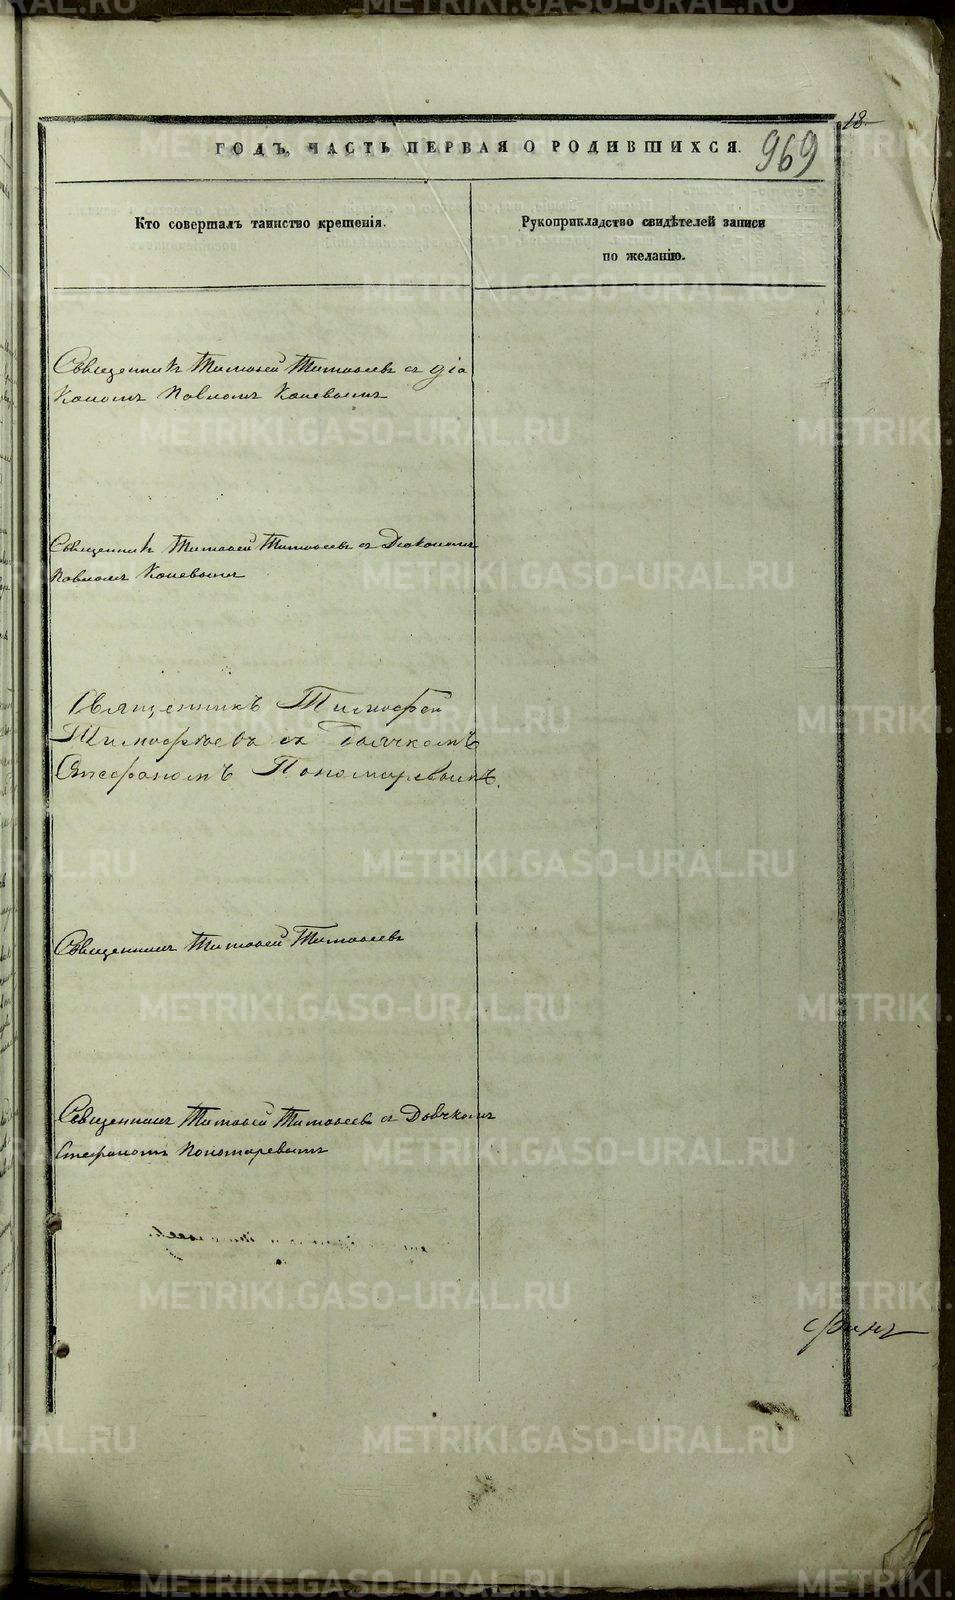 18
ГОДЪ, ЧАСТЬ ПЕРВАЯ О РОДИВШИХСЯ.
969
Кто совершалъ таинство крещенія.
Рукоприкладство свидѣтелей записи
по желанію.
Священникъ Тимофей Тимофеевъ съ діа
кономъ Павломъ Коневымъ
Священникъ Тимофей Тимофеевъ съ Діакономъ
Павломъ Коневымъ
Священникъ Тимофей
Тимофѣевъ съ Дьячкомъ
Стефаномъ Пономаревымъ.
Священникъ Тимофей Тимофеевъ
Священникъ Тимофей Тимофеевъ съ Дьячкомъ
Стефаномъ Пономаревымъ
METRIKI.GASO-URAL.RU